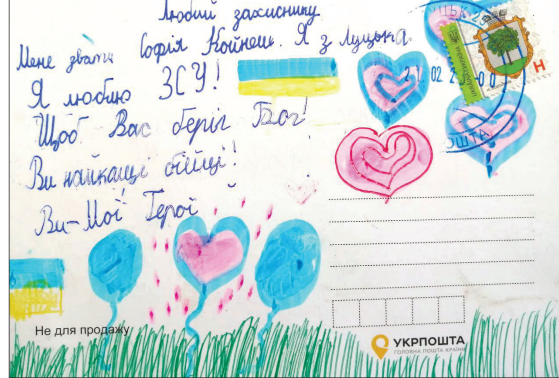 Любий захиснику
Мене звати Софія Койнеш. Я з Луцька
Я люблю ЗСУ!
Щоб Вас беріг Бог!
Ви найкащі бійці!
Ви-Мої Герої
Не для продажу
УКРПОШТА
ГОЛОВНА ПОШТА КРАЇНИ
Н
21 02 2
ПОШТА